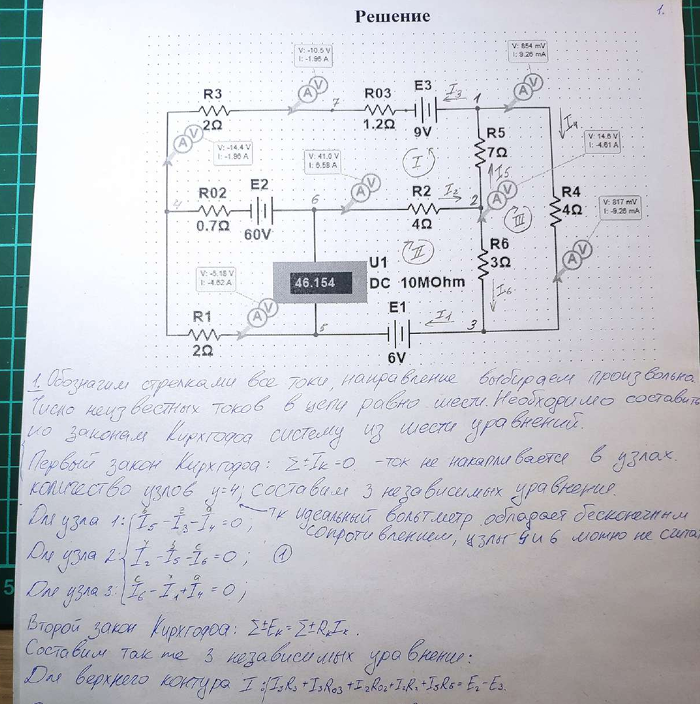 Решение
1.
V: -10.5 V
I: -1.96 A
V: 854 mV
I: 9.26 mA
7
R3
2Ω
R03
1.2Ω
E3
9V
I3
1
I4
V: -14.4 V
I: -1.96 A
I
R5
7Ω
I5
V: 14.5 V
I: -4.61 A
4
R02
0.7Ω
E2
60V
6
V: 41.0 V
I: 6.58 A
R2
4Ω
I2
2
III
R4
4Ω
V: 817 mV
I: -9.26 mA
II
R6
3Ω
I6
U1
46.154
DC 10MOhm
V: -5.15 V
I: -4.62 A
R1
2Ω
5
E1
6V
I1
3
1. Обозначим стрелками все токи, направление выбираем произвольно
Число неизвестных токов в цепи равно шести. Необходимо составить
по законам Кирхгофа систему из шести уравнений.
Первый закон Кирхгофа: Σ±Iк=0 -ток не накапливается в узлах.
количество узлов у=4, составим 3 независимых уравнение.
Для узла 1: I5-I3-I4=0; тк идеальный вольтметр обладает бесконечным
сопротивлением, узлы 4 и 6 можно не
Для узла 2: I2-I5-I6=0; ①
Для узла 3: I6-I1+I4=0;
Второй закон Кирхгофа: Σ±Eк=Σ±RкIк.
Составим так же 3 независимых уравнение:
Для верхнего контура I: I3R3+I3R03+I2R02+I2R2+I5R5=E2-E3